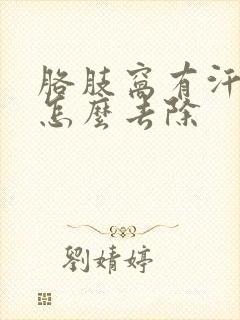 胳肢窩有汗
怎麼去除
劉婧婷